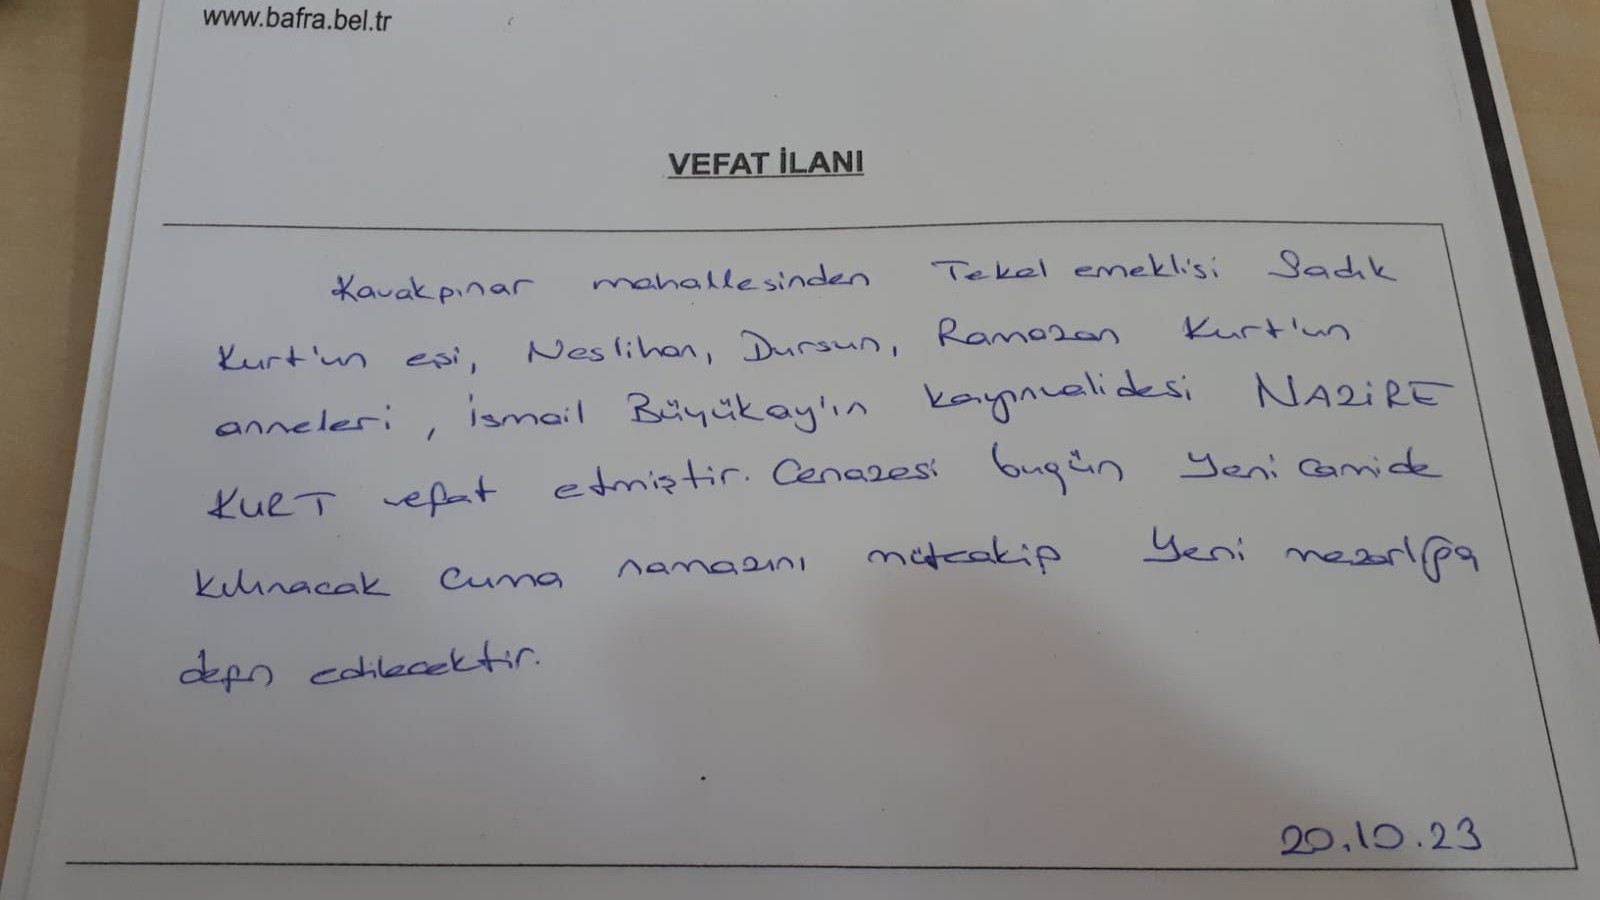 www.bafra.bel.tr
VEFAT İLANI
Kavakpınar mahallesinden Tekel emeklisi Sadık
Kurt'un eşi, Neslihan, Dursun, Ramazan Kurt'un
anneleri, İsmail Büyükay'ın kayınvalidesi NAZİRE
KURT vefat etmiştir. Cenazesi bugün Yeni Camide
kılınacak Cuma namazını müteakip Yeni mezarlığa
defn edilecektir.
20.10.23